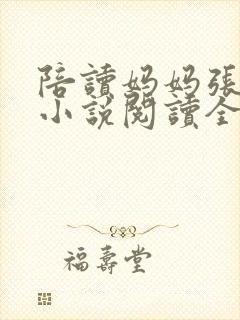 陪讀妈妈張
小說閱讀全
福壽堂